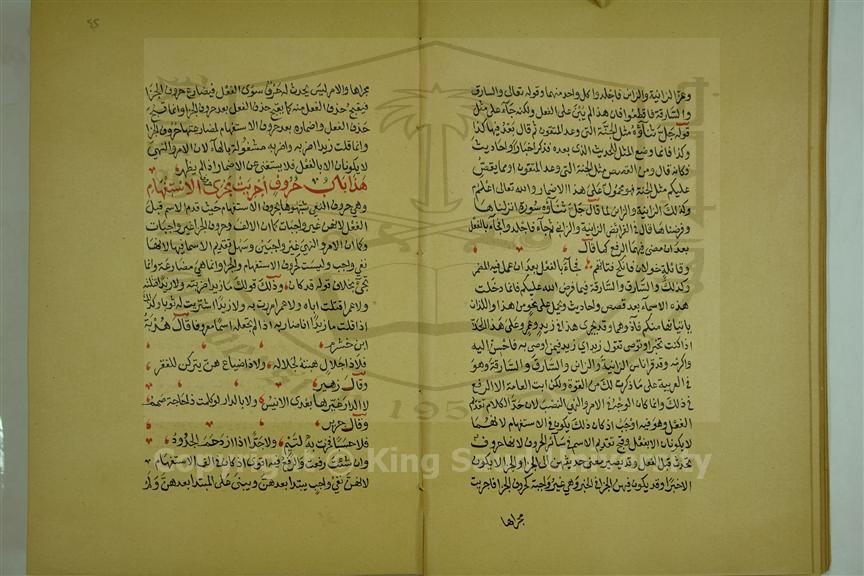 وعز الزانية والزاني فاجلدوا كل واحد منهما وقوله تعالى والسارق
والسارقة فاقطعوا فان هذا لم يبن على الفعل ولكنه جاء على مثل
قوله جل ثناؤه مثل الجنة التي وعد المتقون ثم قال بعد فيها كذا
وكذا فانما وضع المثل للحديث الذي بعده فذكر اخبارا واحاديث
فكانه قال ومن القصص مثل الجنة التي وعد المتقون او مما يقص
عليكم مثل الجنة فهو محمول على هذا الاضمار والله تعالى اعلم
وكذلك الزانية والزاني لما قال جل ثناؤه سورة انزلناها
وفرضناها قال في الفرائض الزانية والزاني ثم جاء فاجلدوا فجاء بالفعل
بعد ان مضى فيهما الرفع كما قال
وقائلة خولان فانكح فتاتهم فجاء بالفعل بعد ان عمل فيه المضمر
وكذلك والسارق والسارقة فيما فرض الله عليكم فانما دخلت
هذه الاسماء بعد قصص واحاديث ويحمل على نحو من هذا واللذان
ياتيانها منكم فآذوهما وقد يجري هذا في زيد وعمرو على هذا الحد
اذا كنت تخبر او توصي تقول زيد اي زيد فيمن اوصي به فاحسن اليه
واكرمه وقد قرا ناس الزانية والزاني والسارق والسارقة وهو
في العربية على ما ذكرت لك من القوة ولكن ابت العامة الا الرفع
في ذلك وانما كان الوجه في الامر والنهي النصب لان حد الكلام تقديم
الفعل وهو فيه اوجب اذ كان ذلك يكون في الاستفهام لانهما
لا يكونان الا بفعل وقبح تقديم الاسم في سائر الحروف لانها حروف
تحدث قبل الفعل وقد يصير معنى حديثهن الى الجزاء والجزاء لا يكون
الا خبرا وقد يكون فيهن الجزاء في الخبر وهي غير واجبة كحروف الجزاء فاجريت
مجراها
مجراها والامر ليس يحدث له حرف سوى الفعل فيضارع حروف الجزاء
فيقبح حذف الفعل منه كما يقبح حذف الفعل بعد حروف الجزاء وانما قبح
حذف الفعل واضماره بعد حروف الاستفهام لمضارعتها حروف الجزاء
وانما قلت زيدا اضربه واضربه مشغولة بالهاء لان الامر والنهي
لا يكونان الا بالفعل فلا يستغنى عن الاضمار اذا لم يظهر
هذا باب حروف اجريت مجرى حروف الاستفهام
وهي حروف النفي شبهوها بحروف الاستفهام حيث قدم الاسم قبل
الفعل لانهن غير واجبات كما ان الالف وحروف الجزاء غير واجبات
وكما ان الامر والنهي غير واجبين وسهل تقديم الاسماء فيها لانها
نفي واجب وليست كحروف الاستفهام والجزاء وانما هي مضارعة وانما
تجيء بخلاف قوله قد كان وذلك قولك ما زيدا ضربته ولا زيدا قتلته
ولا عمرا قتلت اباه ولا عمرا مررت به ولا زيدا اشتريت له ثوبا وكذلك
اذا قلت ما زيدا انا ضاربه اذا لم تجعله اسما معروفا قال هدبة
ابن خشرم
فلا ذا جلال هبنه لجلاله ولا ذا ضياع هن يتركن للفقر
وقال زهير
لا الدار غيرها بعدي الانيس ولا بالدار لو كلمت ذا حاجة صمم
وقال جرير
فلا حسبا فخرت به لتيم ولا جدا اذا ازدحم الجدود
وان شئت رفعت والرفع فيه اقوى اذ كان في الف الاستفهام
لانهن نفي واجب يبتدا بعدهن ويبنى على المبتدا بعدهن ولم